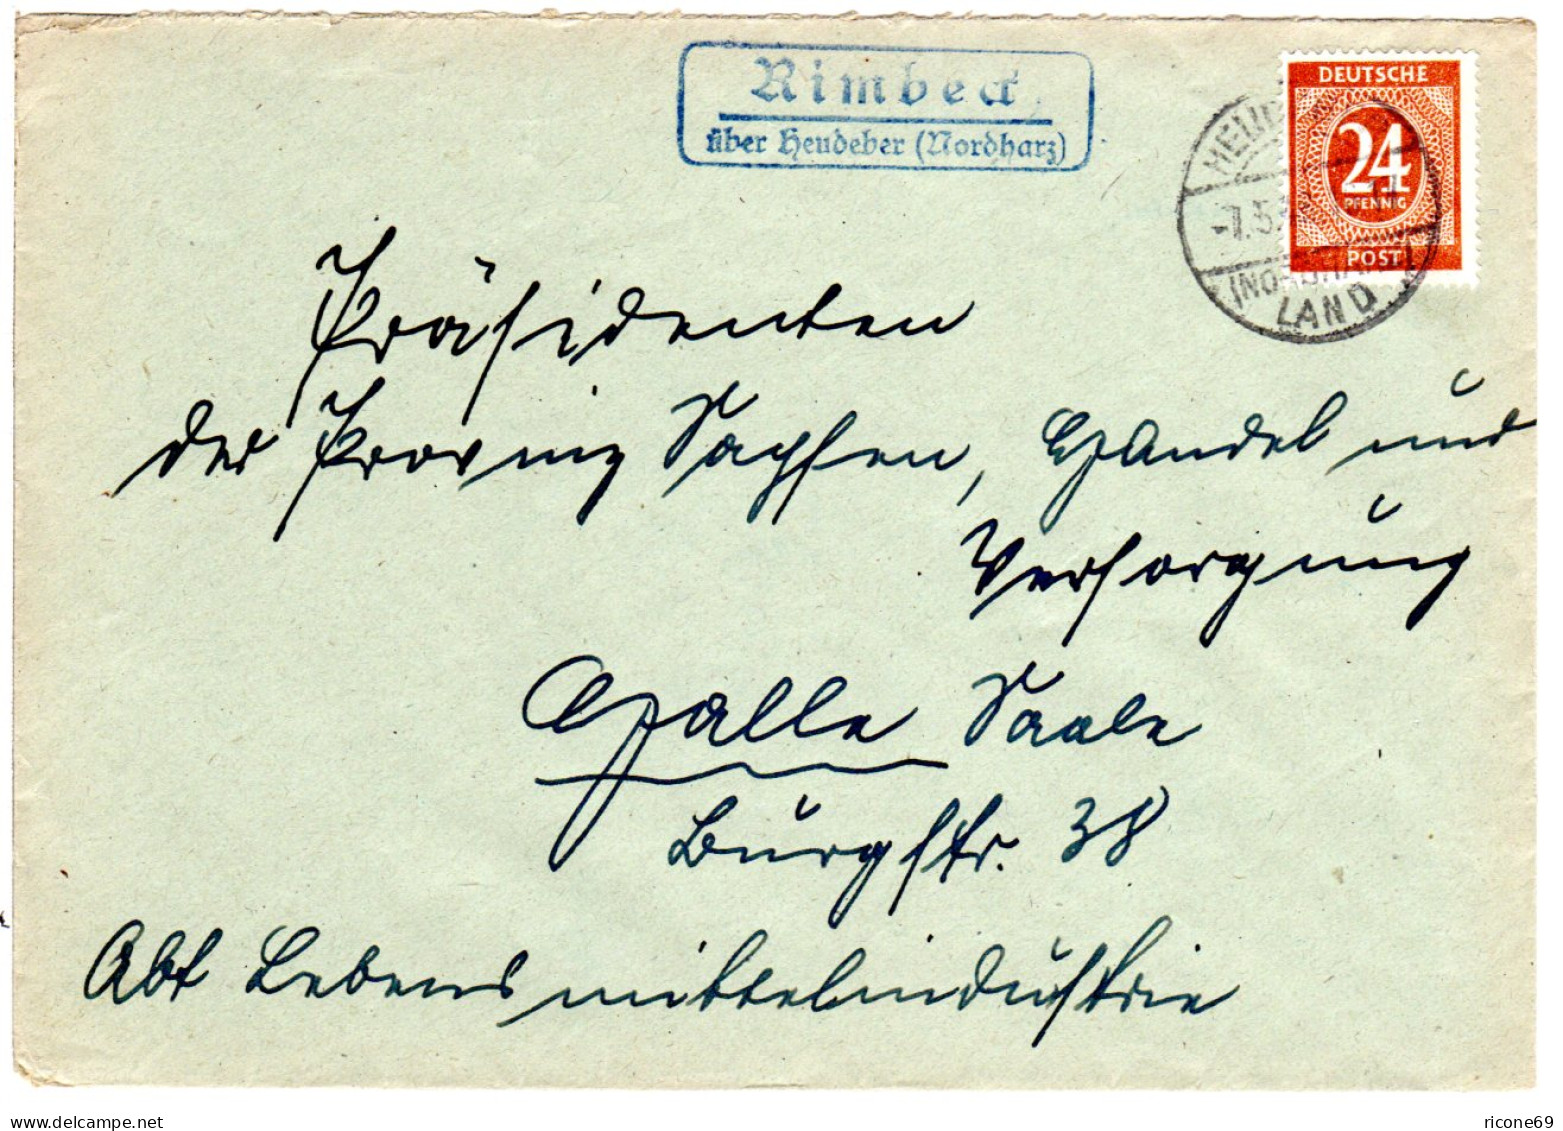 Rimbeck
über Heudeber (Nordharz)
DEUTSCHE
24
PFENNIG
POST
-7.5.
(NORDHARZ)
LAND
Präsidenten
der Provinz Sachsen, Handel und
Versorgung
Halle Saale
Burgstr. 38
Abt Lebensmittelindustrie
www.delcampe.net
ricone69